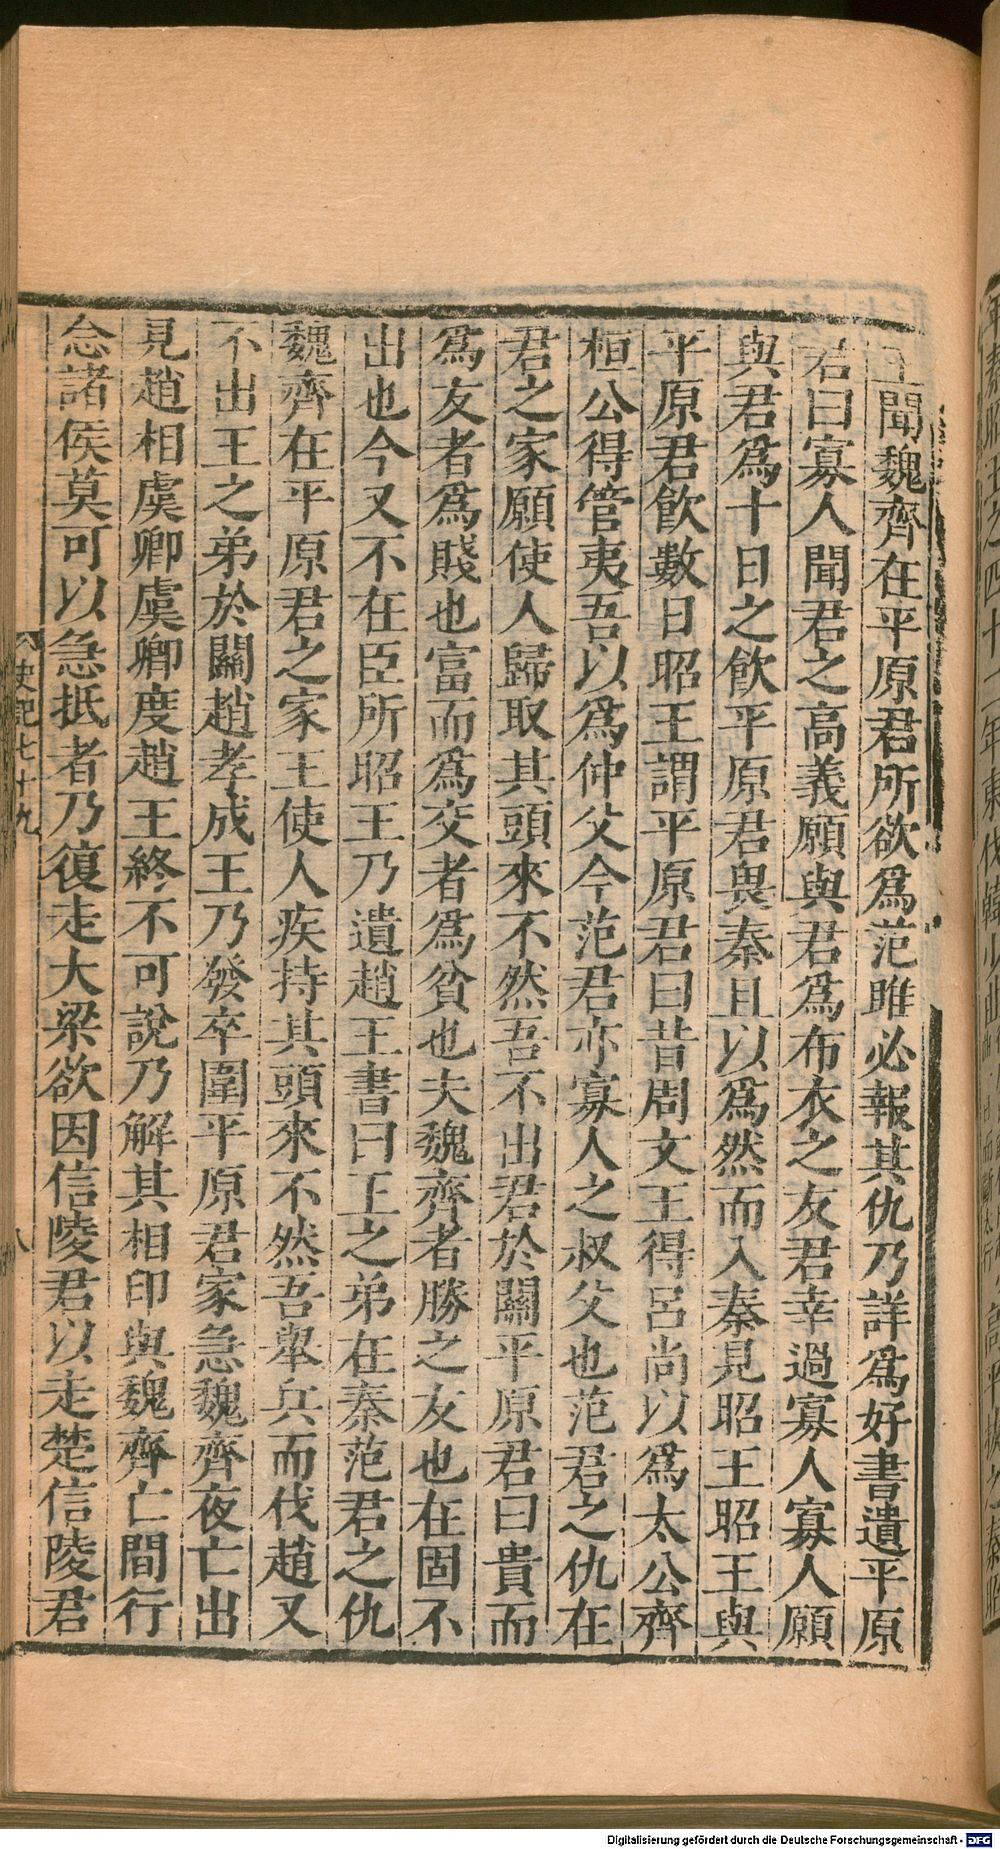 王聞魏齊在平原君所欲爲范雎必報其仇乃詳爲好書遺平原
君曰寡人聞君之高義願與君爲布衣之友君幸過寡人寡人願
與君爲十日之飮平原君畏秦且以爲然而入秦見昭王昭王與
平原君飮數日昭王謂平原君曰昔周文王得呂尚以爲太公齊
桓公得管夷吾以爲仲父今范君亦寡人之叔父也范君之仇在
君之家願使人歸取其頭來不然吾不出君於關平原君曰貴而
爲友者爲賤也富而爲交者爲貧也夫魏齊者勝之友也在固不
出也今又不在臣所昭王乃遺趙王書曰王之弟在秦范君之仇
魏齊在平原君之家王使人疾持其頭來不然吾舉兵而伐趙又
不出王之弟於關趙孝成王乃發卒圍平原君家急魏齊夜亡出
見趙相虞卿虞卿度趙王終不可說乃解其相印與魏齊亡間行
念諸侯莫可以急抵者乃復走大梁欲因信陵君以走楚信陵君
史記七十九
八
Digitalisierung gefördert durch die Deutsche Forschungsgemeinschaft - DFG